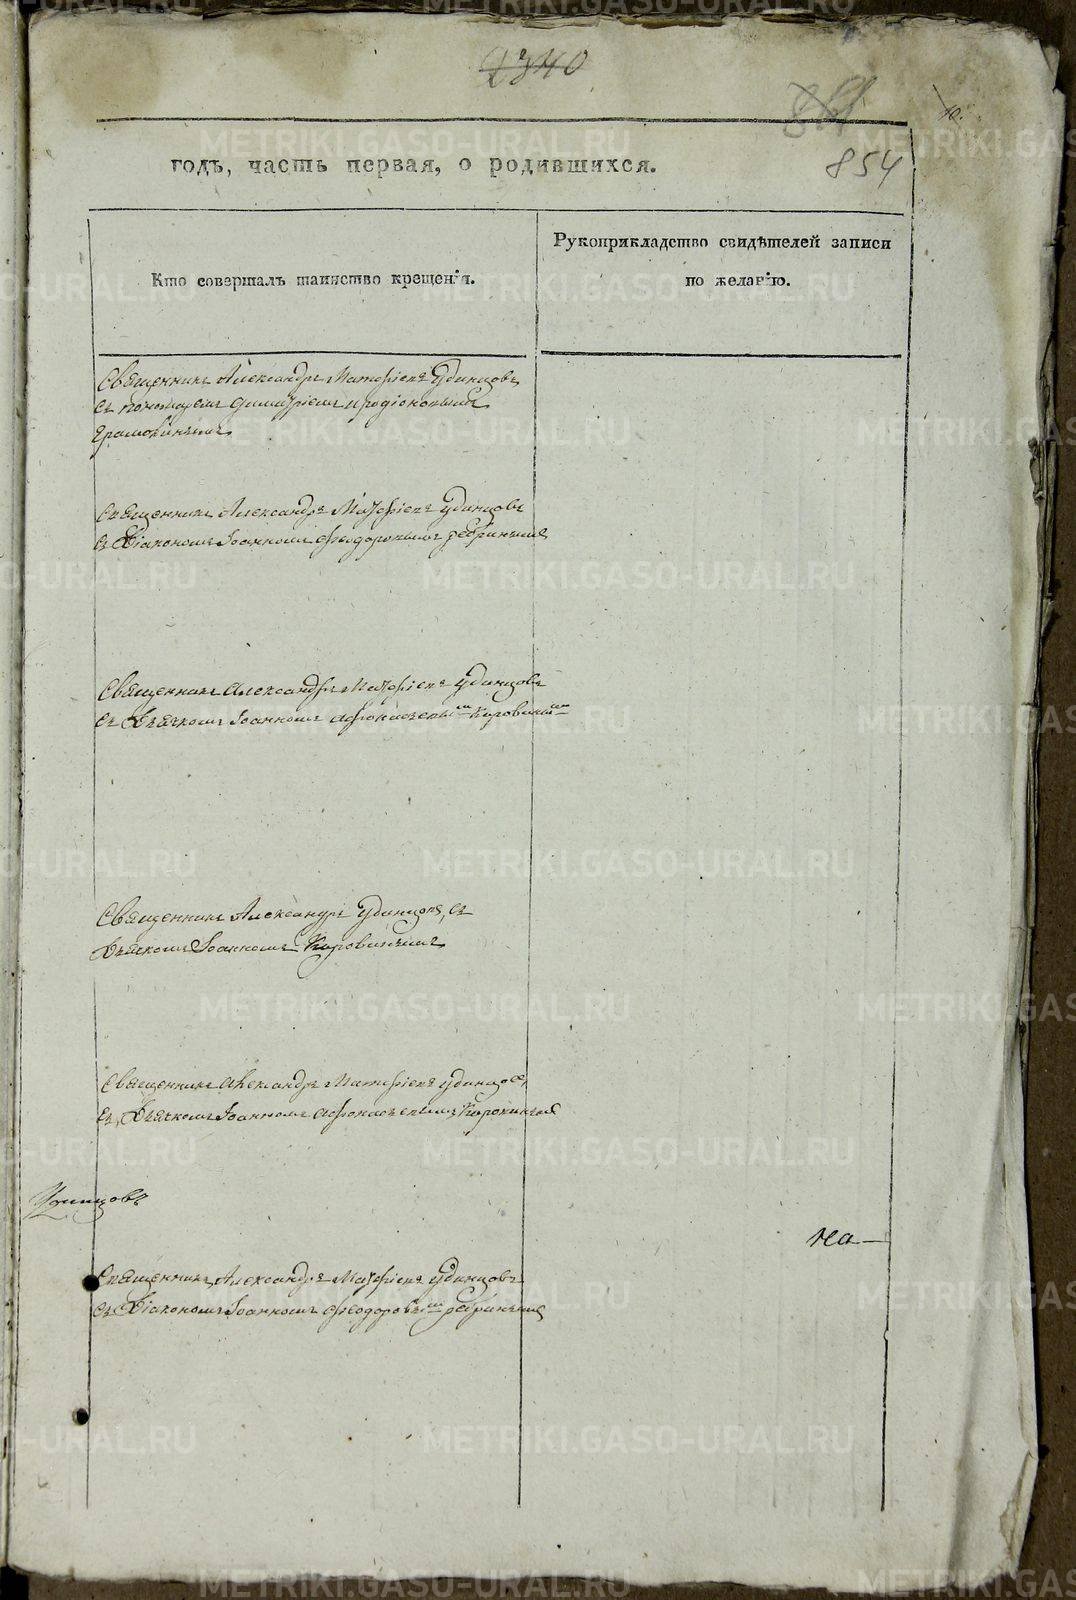 2340
10.
854
годъ, часть первая, о родившихся.
Кто совершалъ таинство крещенія.
Рукоприкладство свидѣтелей записи
по желанію.
Священникъ Александръ Матфіевъ Удинцовъ
съ пономаремъ Димитріемъ Иродіоновымъ
Священникъ Александръ Матфіевъ Удинцовъ
съ Діакономъ Іоанномъ Феодоровымъ
Священникъ Александръ Матфіевъ Удинцовъ
съ Дьячкомъ Іоанномъ Афонасьевымъ Коровинымъ
Священникъ Александръ Удинцовъ, съ
Дьячкомъ Іоанномъ Коровинымъ
Священникъ Александръ Матфіевъ Удинцовъ
съ Дьячкомъ Іоанномъ Афонасьевымъ Коровинымъ
Удинцовъ
на
Священникъ Александръ Матфіевъ Удинцовъ
съ Діакономъ Іоанномъ Феодоровымъ
METRIKI.GASO-URAL.RU